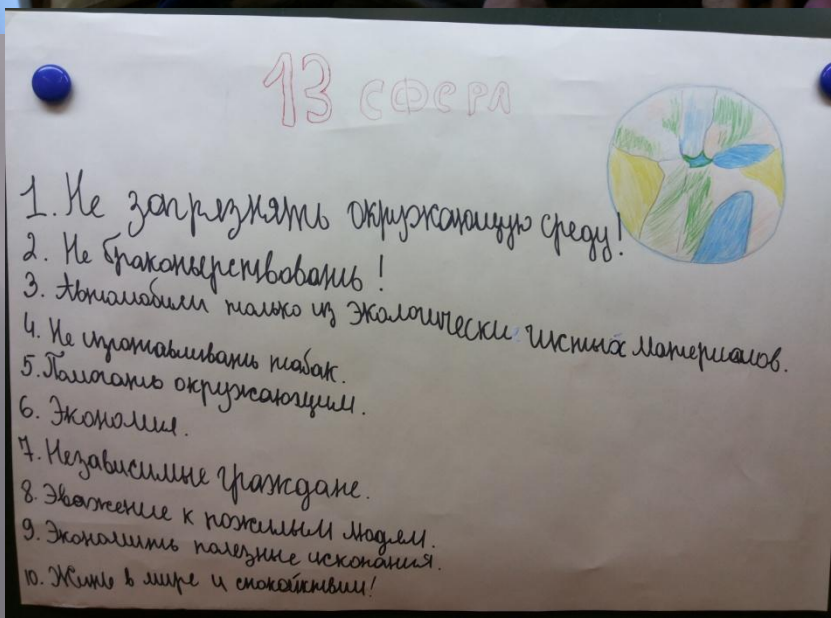 13 СФЕРА
1. Не загрязнять окружающую среду!
2. Не браконьерствовать!
3. Автомобили только из экологически чистых материалов.
4. Не изготавливать табак.
5. Помогать окружающим.
6. Экономия.
7. Независимые граждане.
8. Уважение к пожилым людям.
9. Экономить полезные ископания.
10. Жить в мире и спокойствии!